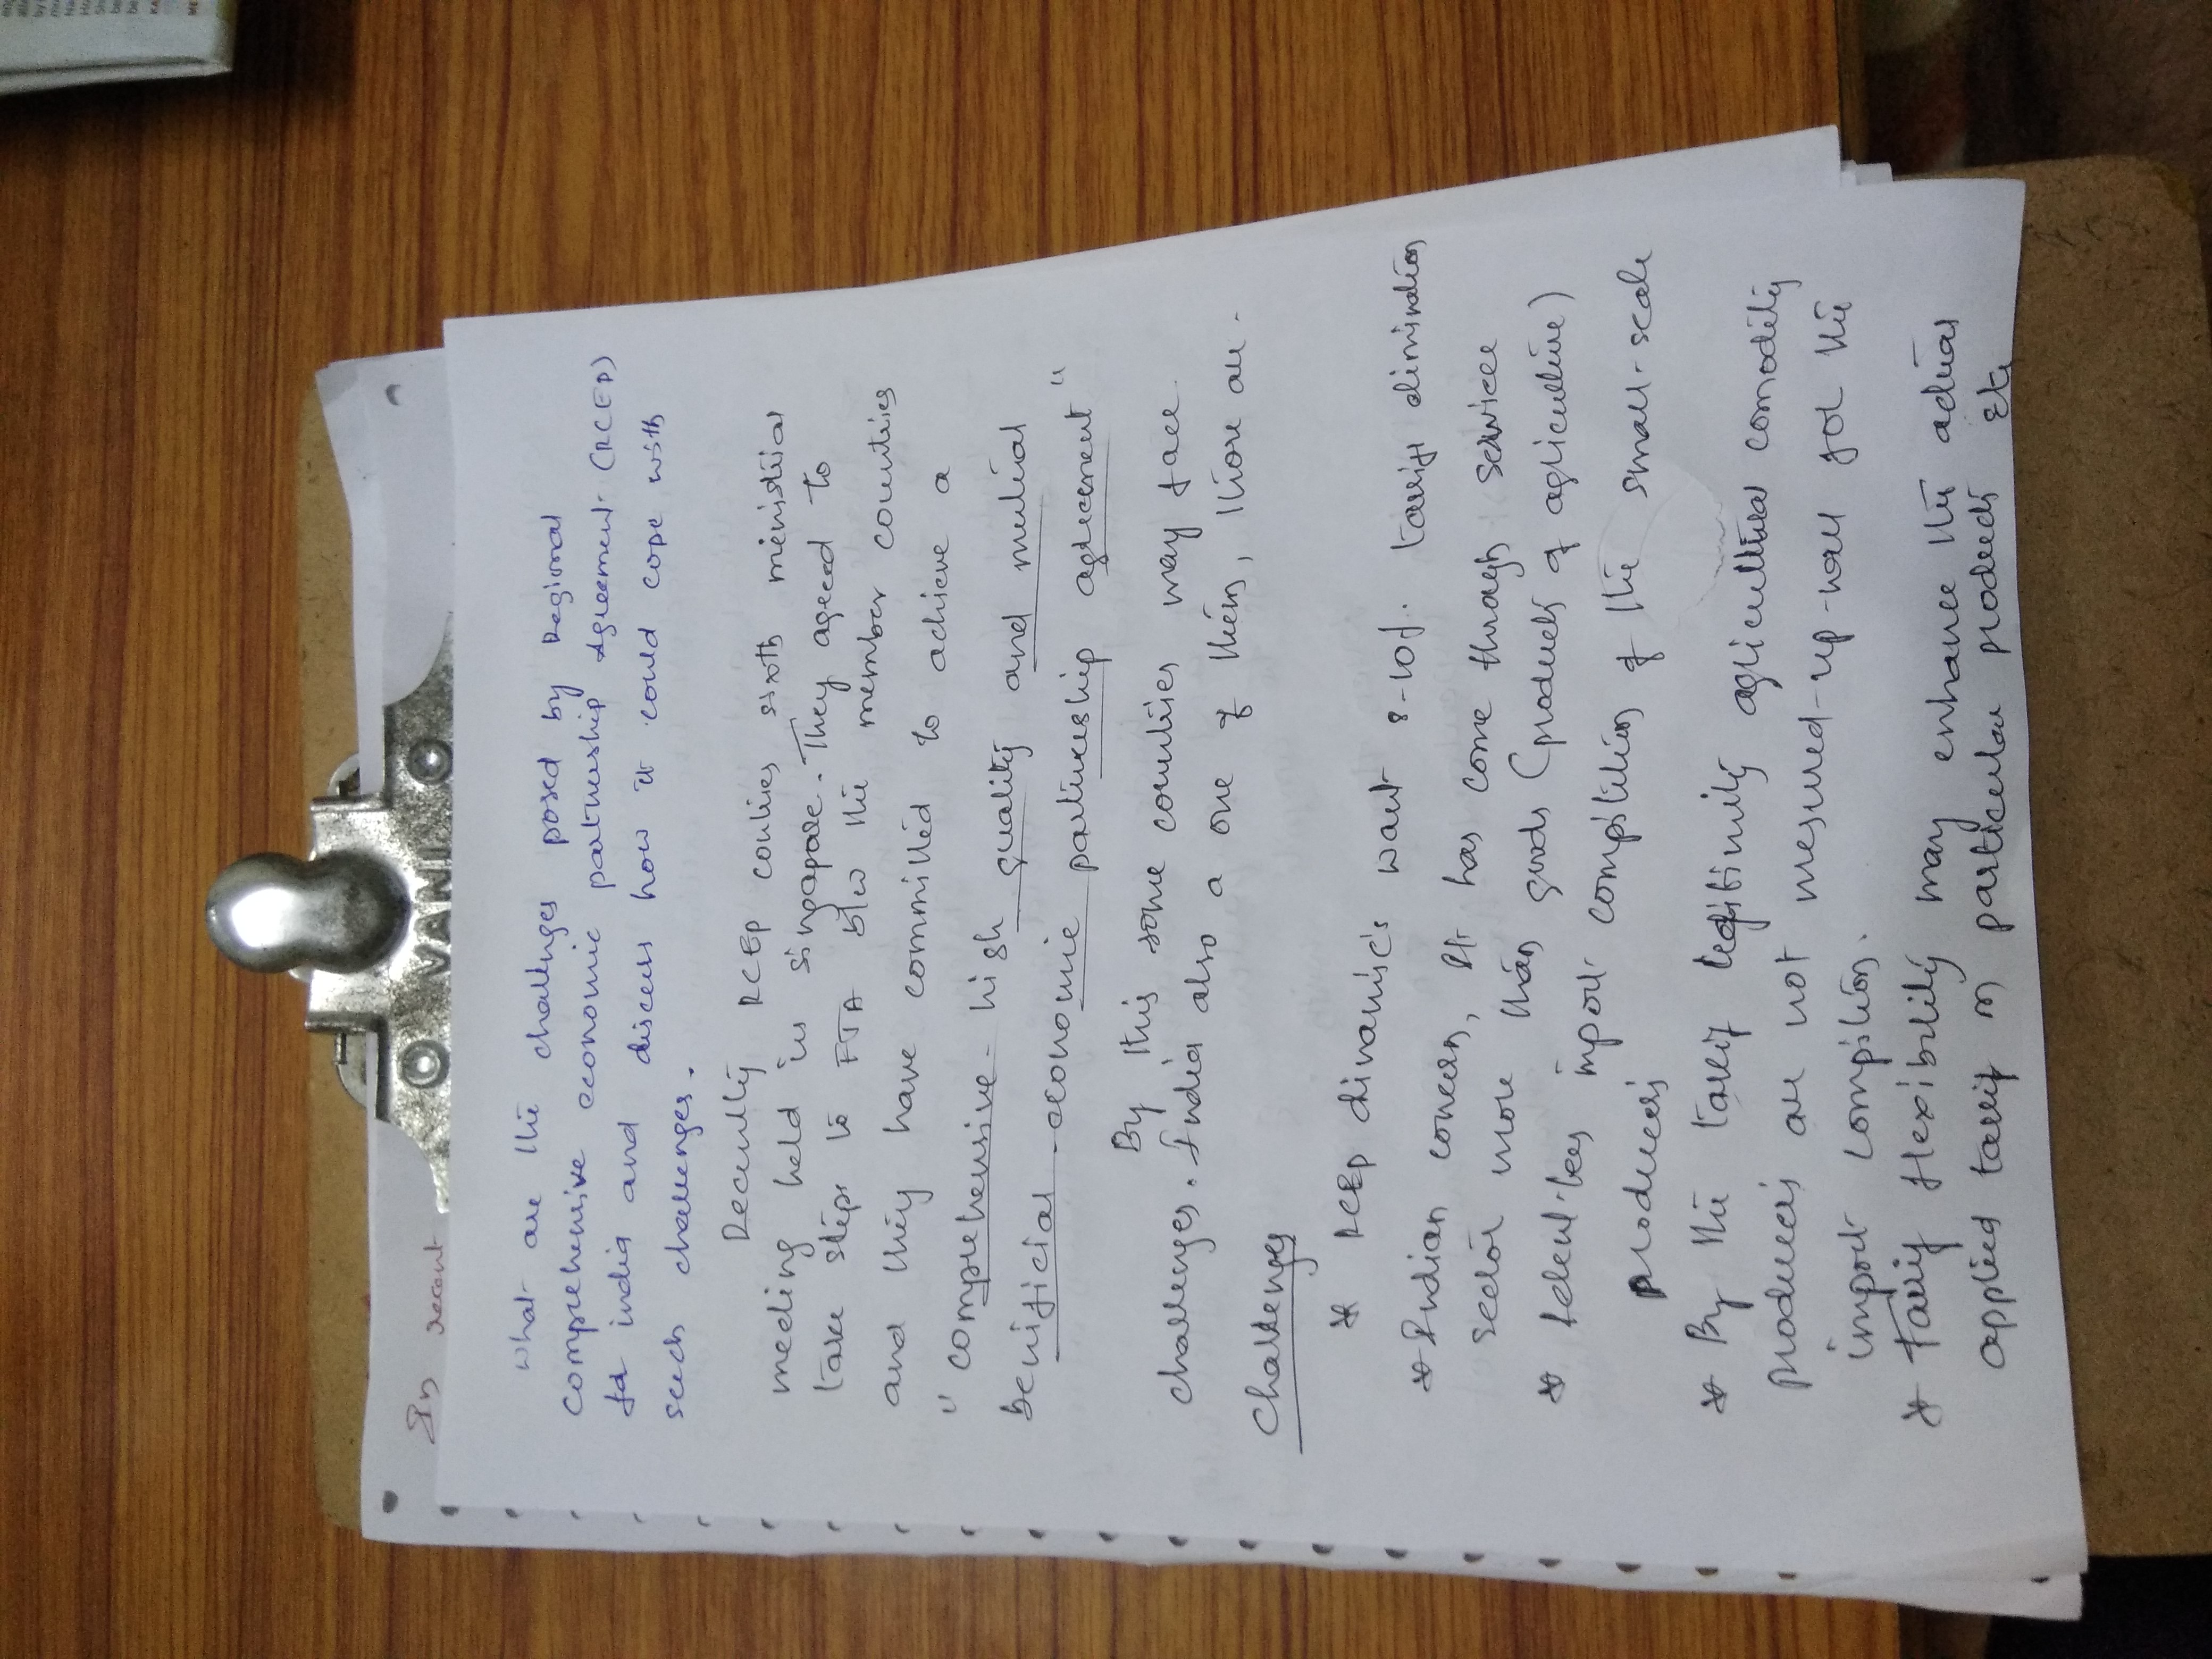 In recent
VANI
what are the challenges posed by Regional
comprehensive economic partnership Agreement (RCEP)
for india and discuss how it could cope with
such challenges.
Recently RCEP coutries sixth ministrial
meeting held in singapore. They agreed to
take steps to FTA b/w the member countries
and they have committed to achieve a
" comprehensive - high quality and mutual
benificial - economic partnership agreement"
By this some countries may face
challenges. India also a one of them, those are.
Challenges
* RCEP dinamic's want 8-10%. tariff elimination
* Indian concern, It has come through service
sector more than goods (products of agriculture)
* import compitition of the small-scale
producers
* By the tariff agricultural comodity
producers are not mesured-up-well for the
import compition.
* Tariff flexibility may enhance the
applied tariff on particular products etc